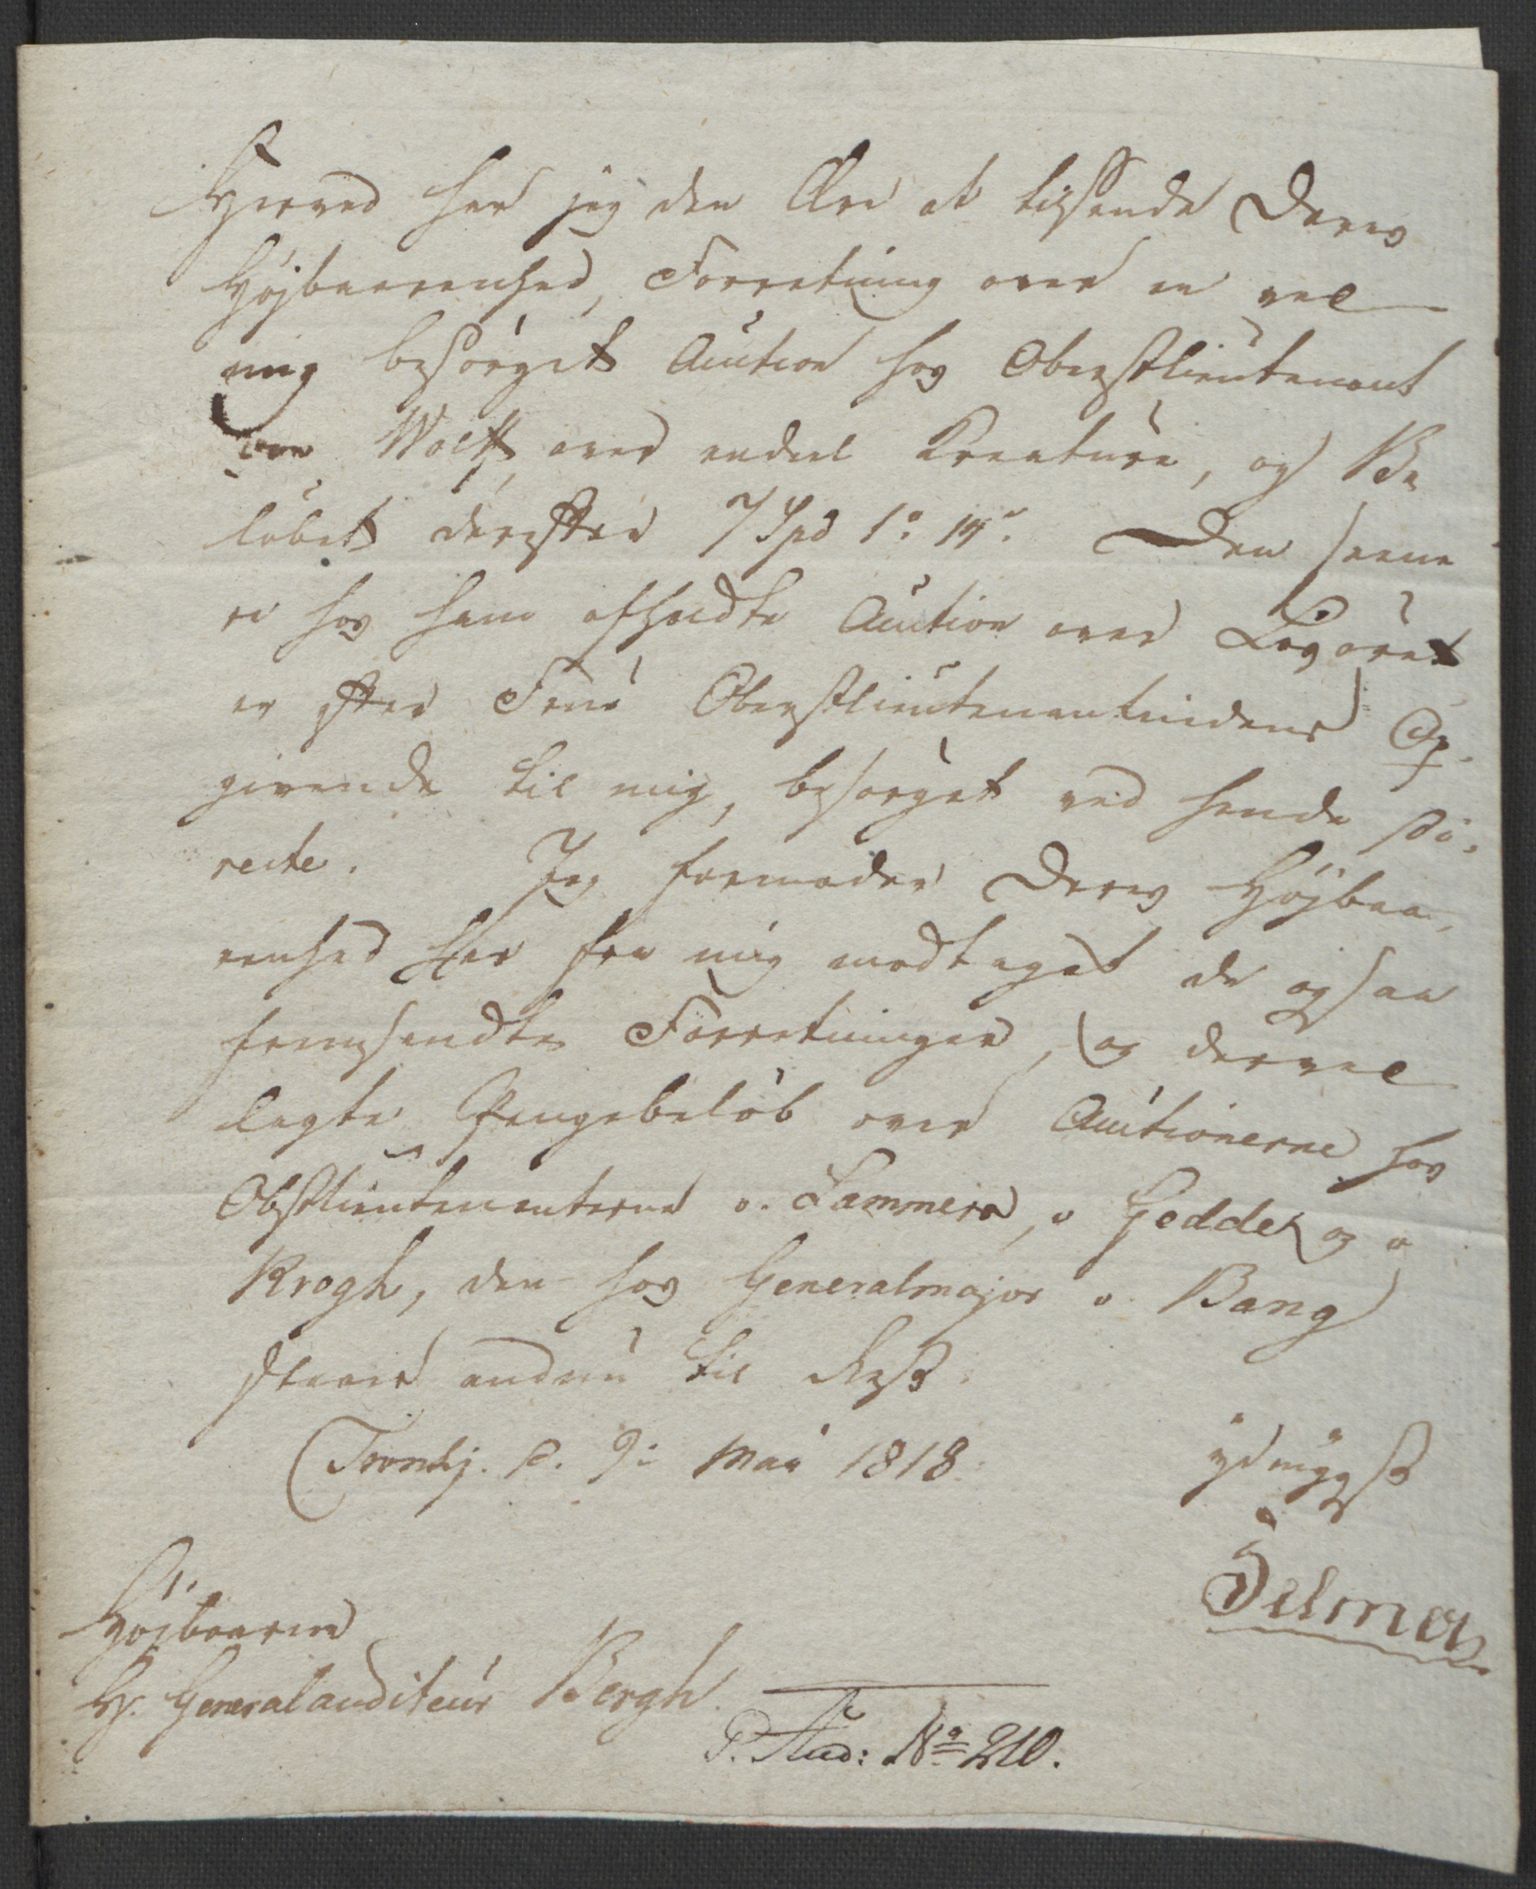 Herved har jeg den Ære at tilsende Deres
Højbaarenhed, Forretning over en ved
mig besørget Auction hos Oberstlieutenant
von Wolff, over endeel Creature, og Be
løbet derefter 7 Spd 1 o: 14 s. Den senne
re hos ham afholdte Auction over Løsøret
er efter Frue Oberstlieutenantindens Op
givende til mig, besørget ved hende di,
recte. Jeg formoder Deres Højbaa,
renhed har fra mig modtaget de ogsaa
fremsendte Forretninger, og derved
lagte Pengebeløb over Auctionerne hos
Obstlieutenanterne v. Lammers, v Gedde og v
Krogh, den hos Generalmajor v. Bang
staaer endnu til Rest.
Trondhj. d. 9de Mai 1818.
ydmygst
Højbaarne
Hr. Generalauditeur Bergh.
P. Aud: No 210.